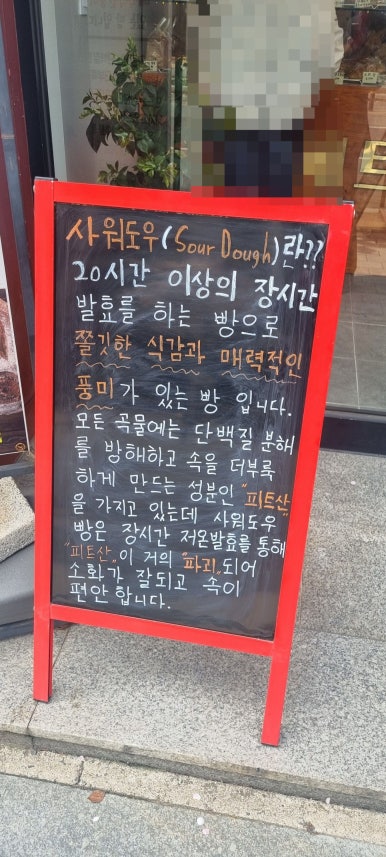 사워도우(Sour Dough)란??
20시간 이상의 장시간
발효를 하는 빵으로
쫄깃한 식감과 매력적인
풍미가 있는 빵 입니다.
모든 곡물에는 단백질 분해
를 방해하고 속을 더부룩
하게 만드는 성분인 "피트산"
을 가지고 있는데 사워도우
빵은 장시간 저온발효를 통해
"피트산"이 거의 "파괴"되어
소화가 잘되고 속이
편안 합니다.